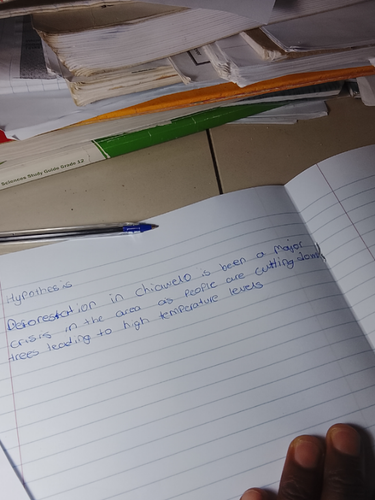 Sciences Study Guide Grade 12
Hypothesis
Deforestation in Chiawelo is been a major
crisis in the area as People are cutting down
trees leading to high temperature levels